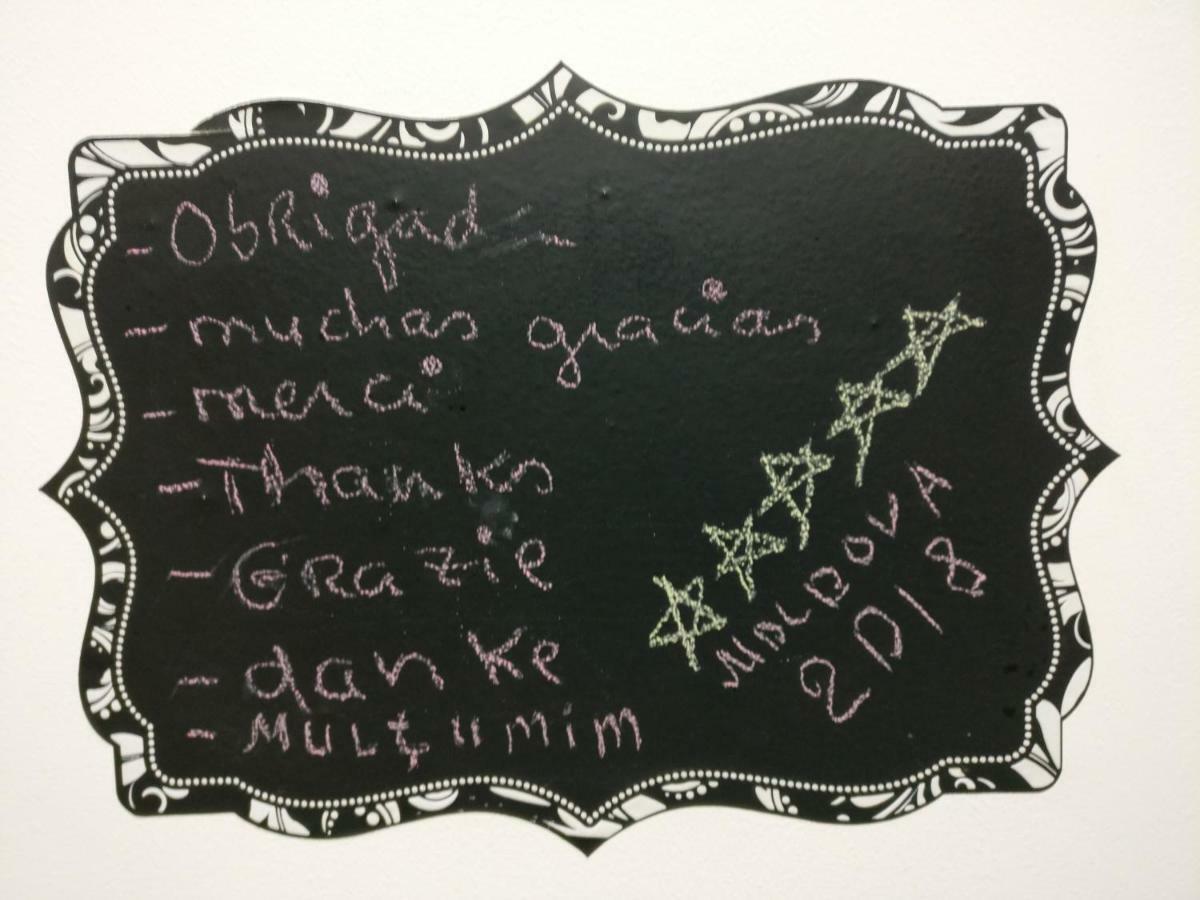 - Obrigad
- muchas gracias
- merci
- Thanks
- Grazie
- danke
- Mulţumim
MOLDOVA
2018